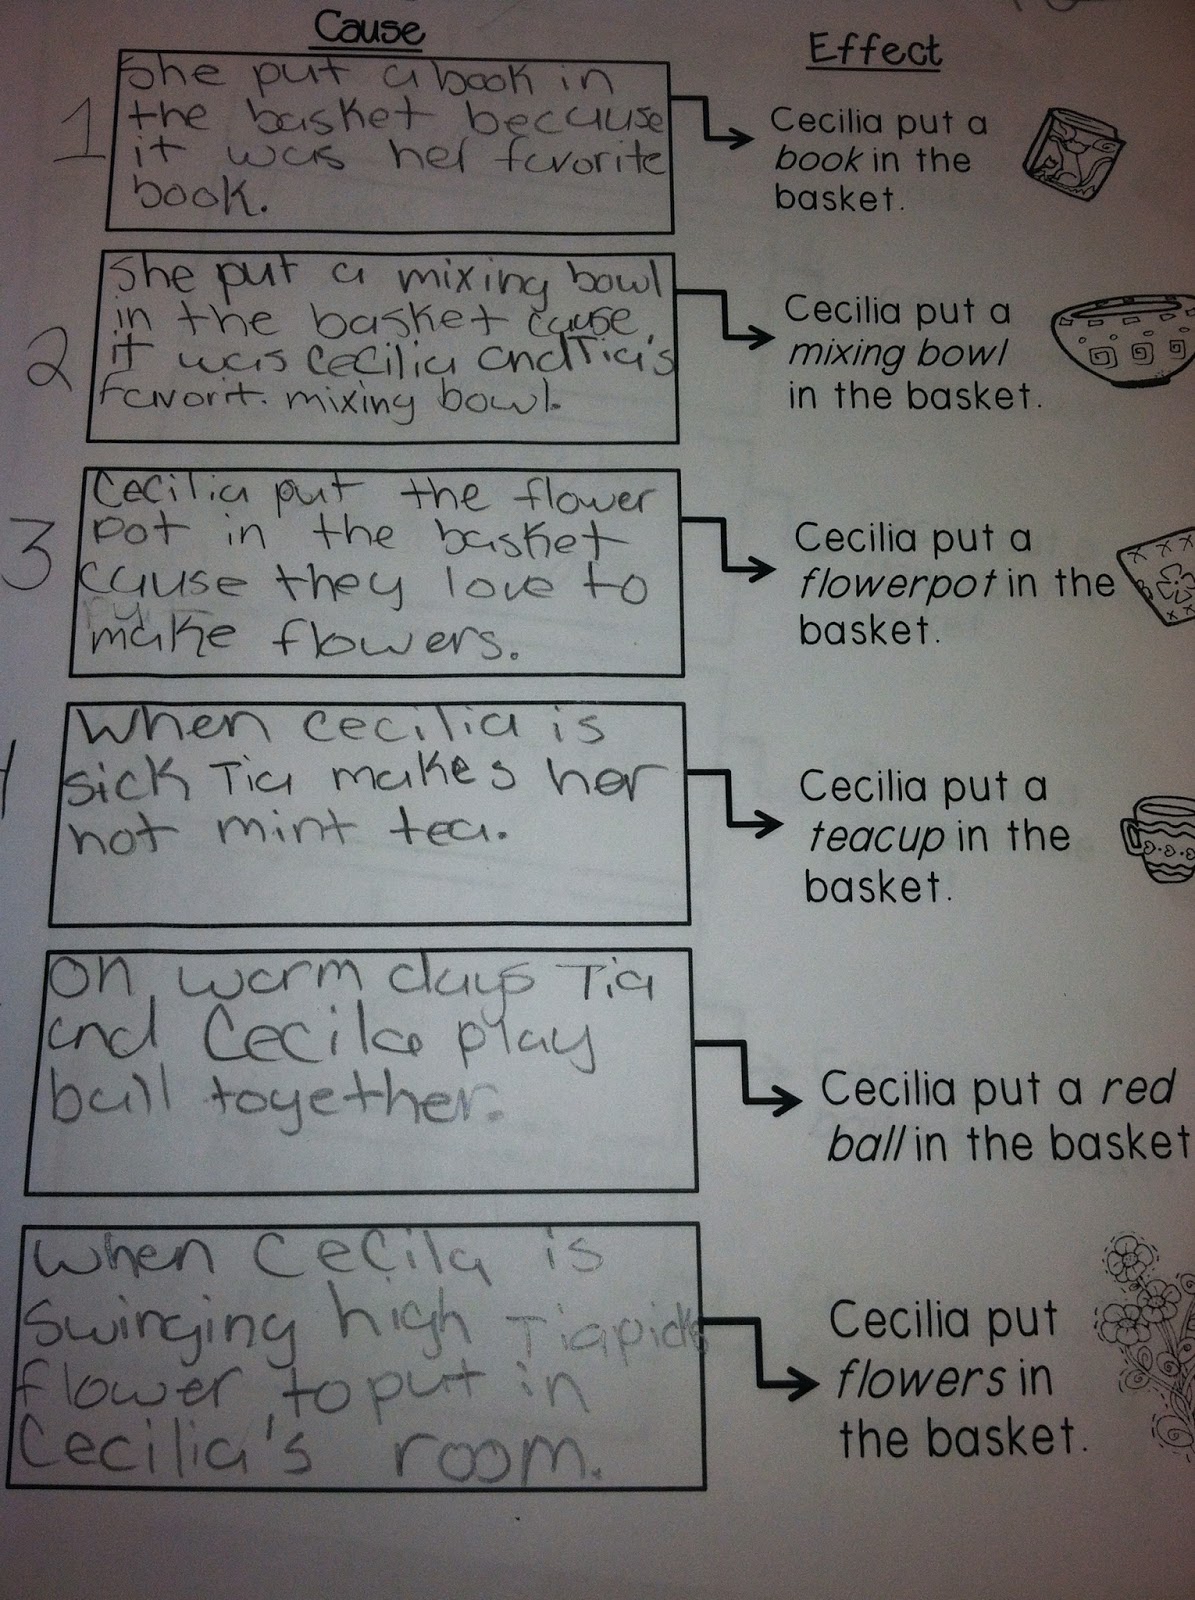 Cause
Effect
1
She put a book in
the basket because
it was her favorite
book.
Cecilia put a
book in the
basket.
2
She put a mixing bowl
in the basket cause
it was Cecilia and Tia's
favorit. mixing bowl.
Cecilia put a
mixing bowl
in the basket.
3
Cecilia put the flower
pot in the basket
cause they love to
make flowers.
Cecilia put a
flowerpot in the
basket.
When cecilia is
sick Tia makes her
hot mint tea.
Cecilia put a
teacup in the
basket.
On warm days Tia
and Cecila play
ball together.
Cecilia put a red
ball in the basket
When Cecila is
Swinging high Tia picks
flower to put in
Cecilia's room.
Cecilia put
flowers in
the basket.